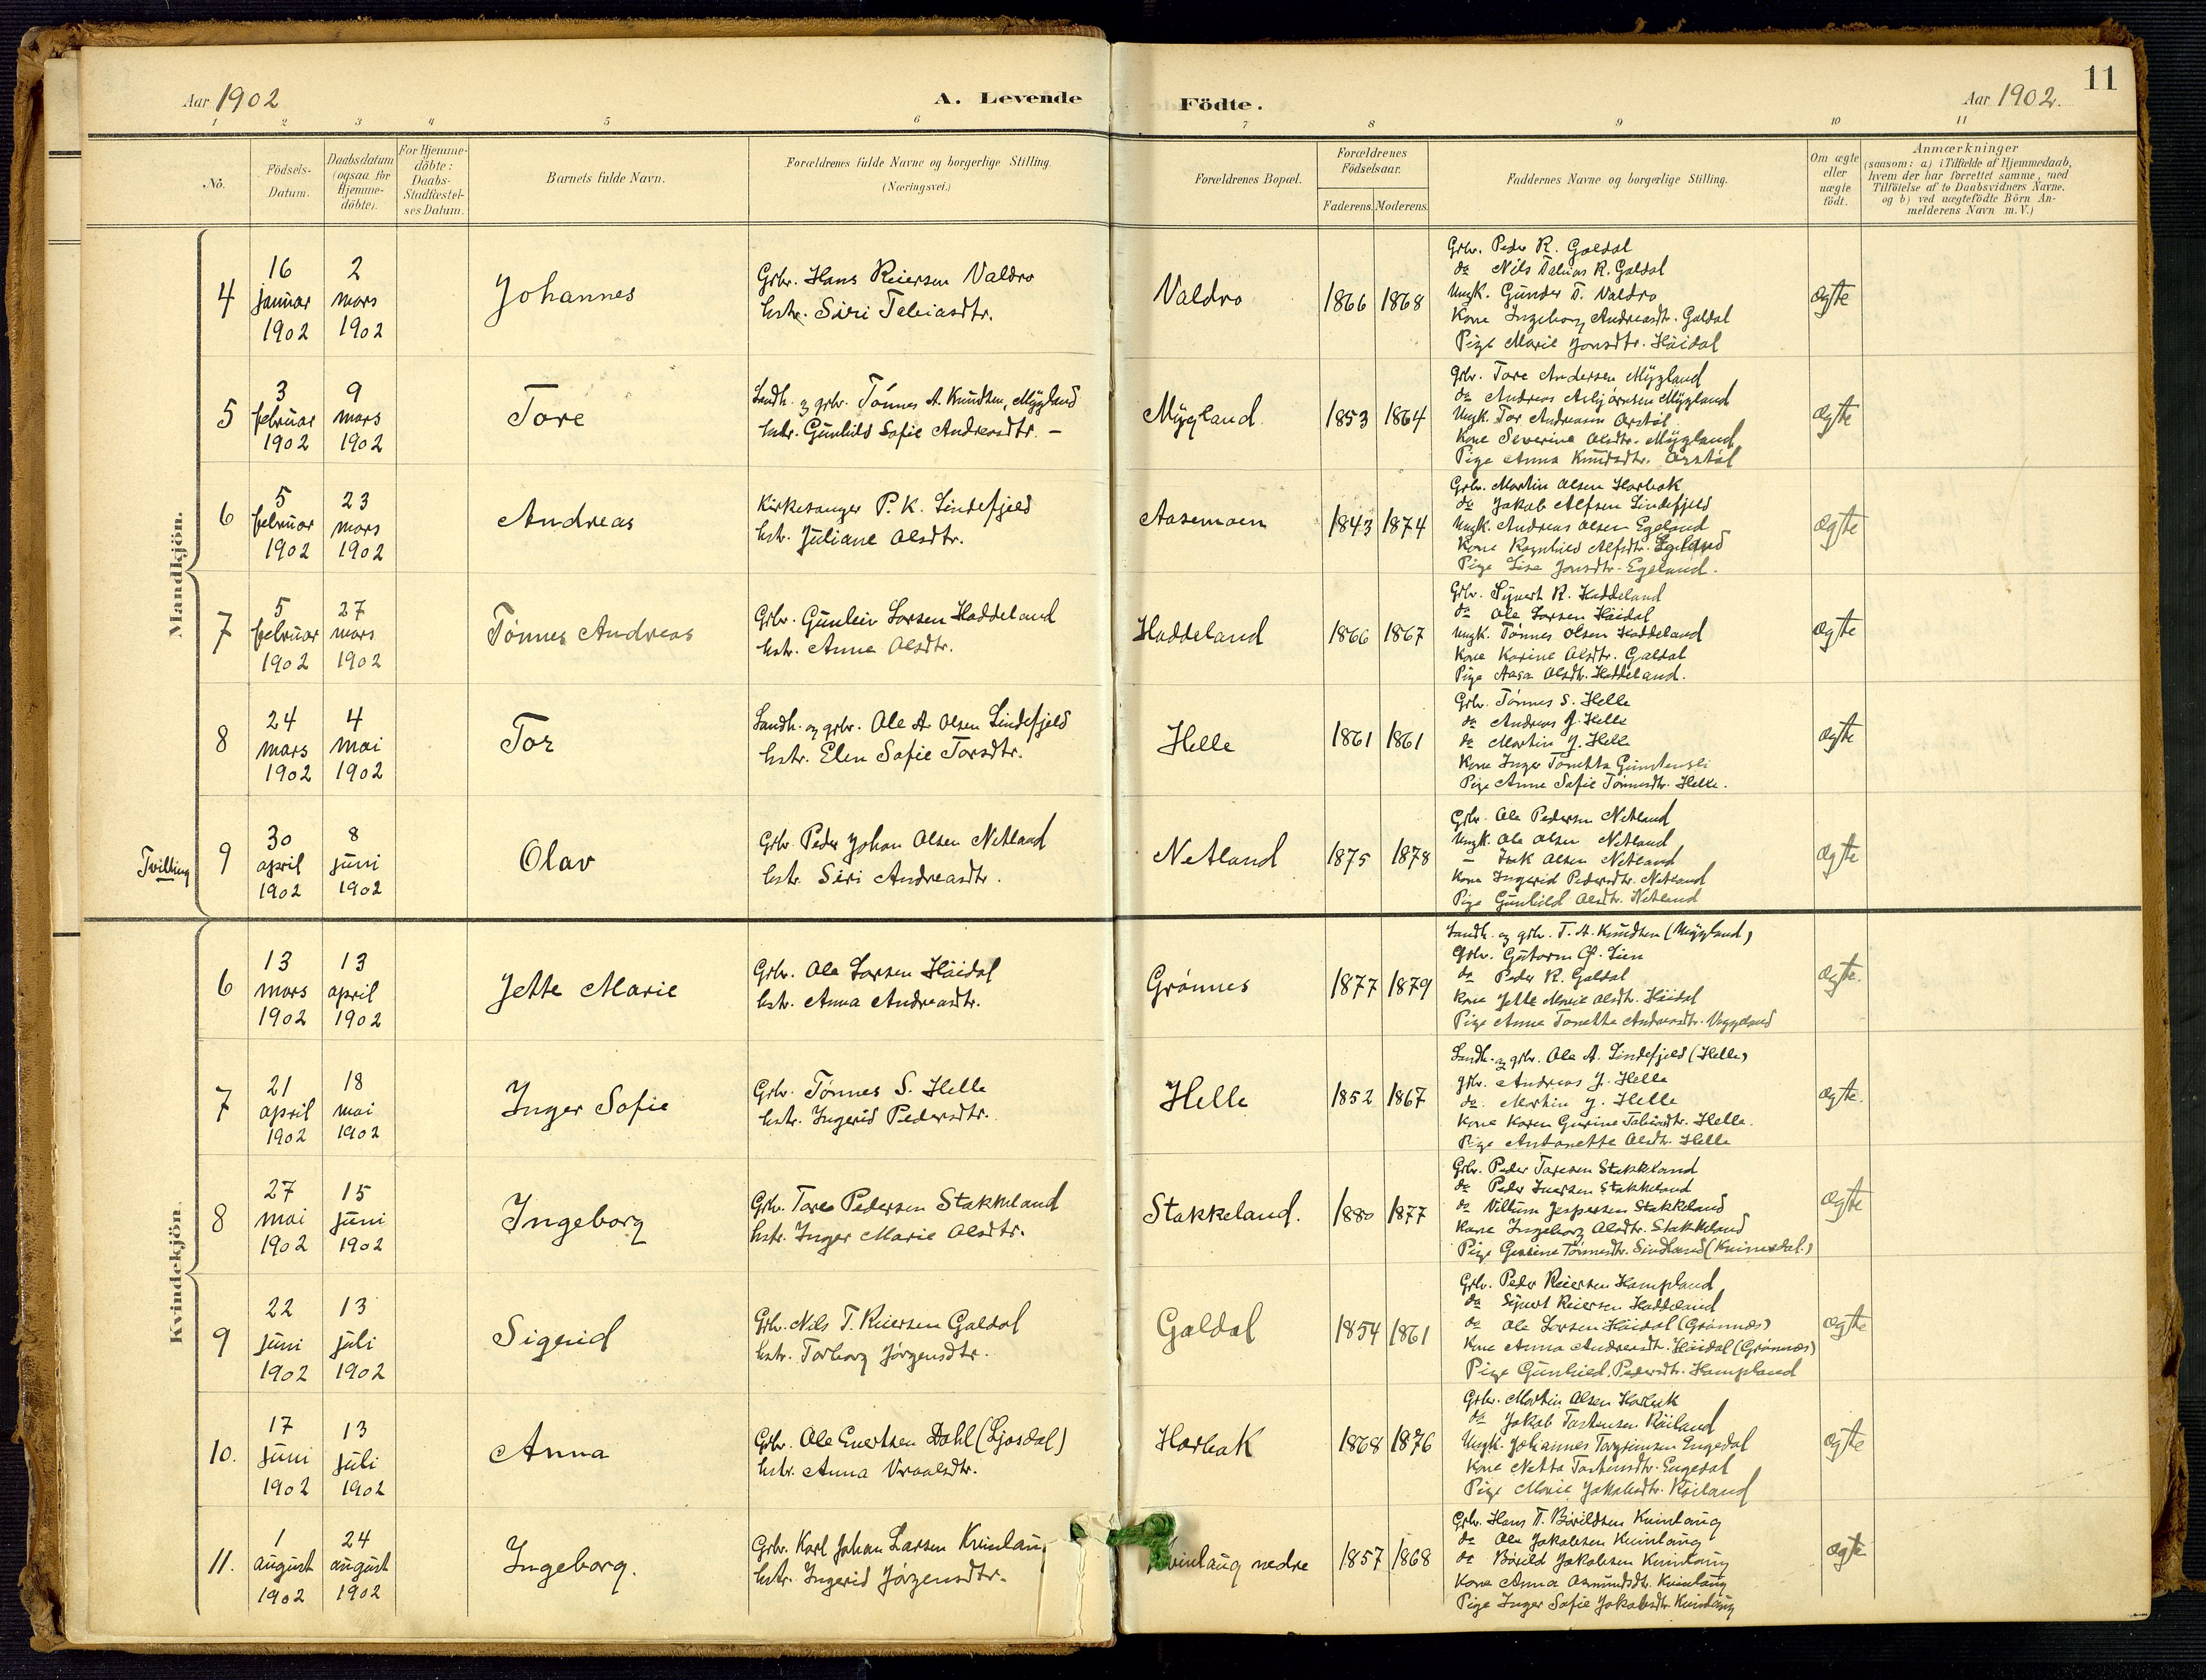 Aar 1902
A. Levende Födte.
Aar 1902.
11
1 2 3 4 5 6 7 8 9 10 11
Nō.
Födsels-Datum.
Daabsdatum (ogsaa for Hjemme-döbte).
For Hjemme-döbte: Daabs-Stadfæstel-ses Datum.
Barnets fulde Navn.
Forældrenes fulde Navne og borgerlige Stilling. (Næringsvei.)
Forældrenes Bopæl.
Forældrenes Födselsaar.
Faderens. Moderens.
Faddernes Navne og borgerlige Stilling.
Om ægte eller uægte födt.
Anmærkninger
(saasom: a) i Tilfælde af Hjemmedaab,
hvem der har forrettet samme, med
Tilföielse af to Daabsvidners Navne.
og b) ved uægtefödte Börn An-
melderens Navn m. V.)
Mandkjön.
4
16 januar 1902
2 mars 1902
Johannes
Grbr. Hans Reiersen Valdro
hstr. Siri Tobiasdtr.
Valdro
1866 1868
Grbr. Peder R. Galdal
do Nils Tobias R. Galdal
Ungk. Gunder T. Valdro
Kone Ingeborg Andreasdtr. Galdal
Pige Marie Jonsdtr. Häidal
Ægte
5
3 februar 1902
9 mars 1902
Tore
Landh. og grbr. Tönnes A. Knudsen, Mygland
hstr. Gunhild Sofie Andreasdtr. –
Mygland.
1853 1864
Grbr. Tore Andersen Mygland
do Andreas Asbjörnsen Mygland
Ungk. Tor Andreasen Örstöl
Kone Severine Olsdtr. Mygland
Pige Anna Knudsdtr. Örstöl
Ægte
6
5 februar 1902
23 mars 1902
Andreas
Kirkesanger P. K. Lindefjeld
hstr. Juliane Olsdtr.
Aasemoen
1843 1874
Grbr. Martin Olsen Horbok
do Jakob Alfsen Lindefjeld
Ungk. Andreas Olsen Egeland
Kone Ragnhild Alfsdtr. Egeland
Pige Lise Jonsdtr. Egeland.
Ægte
7
5 februar 1902
27 mars 1902
Tönnes Andreas
Grbr. Gunleiv Larsen Haddeland
hstr. Anne Olsdtr.
Haddeland
1866 1867
Grbr. Sijvert R. Haddeland
do Ole Larsen Häidal
Ungk. Tönnes Olsen Haddeland
Kone Karine Olsdtr. Galdal
Pige Aasa Olsdtr. Haddeland.
Ægte
8
24 mars 1902
4 mai 1902
Tor
Landh. og grbr. Ole A. Olsen Lindefjeld
hstr. Elen Sofie Torsdtr.
Helle
1861 1861
Grbr. Tönnes S. Helle
do Andreas J. Helle
do Martin J. Helle
Kone Inger Tonetta
Pige Anne Sofie Tönnesdtr. Helle.
Ægte
Tvilling
9
30 april 1902
8 juni 1902
Olav
Grbr. Peder Johan Olsen Netland
hstr. Siri Andreasdtr.
Netland
1875 1878
Grbr. Ole Pedersen Netland
Ungk. Ole Olsen Netland
– Isak Olsen Netland
Kone Ingerid Pedersdtr. Netland
Pige Gunhild Olsdtr. Netland
Ægte
Kvindekjön.
6
13 mars 1902
13 april 1902
Jette Marie
Grbr. Ole Larsen Häidal
hstr. Anna Andreasdtr.
Grönnes
1877 1879
Landh. og grbr. T. A. Knudsen (Mygland)
Grbr. Gutorm G. Lien
do Peder R. Galdal
Kone Jette Marie Olsdtr. Häidal
Pige Anne Tonette Andreasdtr.
Ægte.
7
21 april 1902
18 mai 1902
Inger Sofie
Grbr. Tönnes S. Helle
hstr. Ingerid Pedersdtr.
Helle
1852 1867
Landh. og grbr. Ole A. Lindefjeld (Helle)
grbr. Andreas J. Helle
do. Martin J. Helle
Kone Karen Gurine Tobiasdtr. Helle.
Pige Antonette Olsdtr. Helle
Ægte.
8
27 mai 1902
15 juni 1902
Ingeborg
Grbr. Tores Pedersen Stakkeland
hstr. Inger Marie Olsdtr.
Stakkeland.
1880 1877
Grbr. Peder Toresen Stakkeland
do Peder Iversen Stakkeland
do Villum Jespersen Stakkeland
Kone Ingeborg Olsdtr. Stakkeland
Pige Gesine Tönnesdtr. Sindland (Kvinesdal.)
Ægte
9
22 juni 1902
13 juli 1902
Sigerid
Grbr. Nils T. Reiersen Galdal
hstr. Torborg Jörgensdtr.
Galdal
1854 1861
Grbr. Peder Reiersen Hampland
do Sijvert Reiersen Haddeland
do Ole Larsen Häidal (Grönnes)
Kone Anna Andreasdtr. Häidal (Grönnes)
Pige Gunhild Pedersdtr. Hampland
Ægte
10.
17 juni 1902
13 juli 1902
Anna
Grbr. Ole Evertsen Dahl (Ljosdal)
hstr. Anna Vraalsdtr.
Horbok
1868 1876
Grbr. Martin Olsen Horbok
do Jakob Tostensen Röiland
Ungk. Johannes Torgrimsen Engedal
Kone Netta Tostensdtr. Engedal
Pige Marie Jakobsdtr. Röiland
Ægte
11.
1 august 1902
24 august 1902
Ingeborg.
Grbr. Karl Johan Larsen Kvinlaug
hstr. Ingerid Jörgensdtr.
Kvinlaug nedre
1857 1868
Grbr. Hans T. Bövildsen Kvinlaug
do Ole Jakobsen Kvinlaug
do Bövild Jakobsen Kvinlaug
Kone Anna Osmundsdtr. Kvinlaug
Pige Inger Sofie Jakobsdtr. Kvinlaug
Ægte